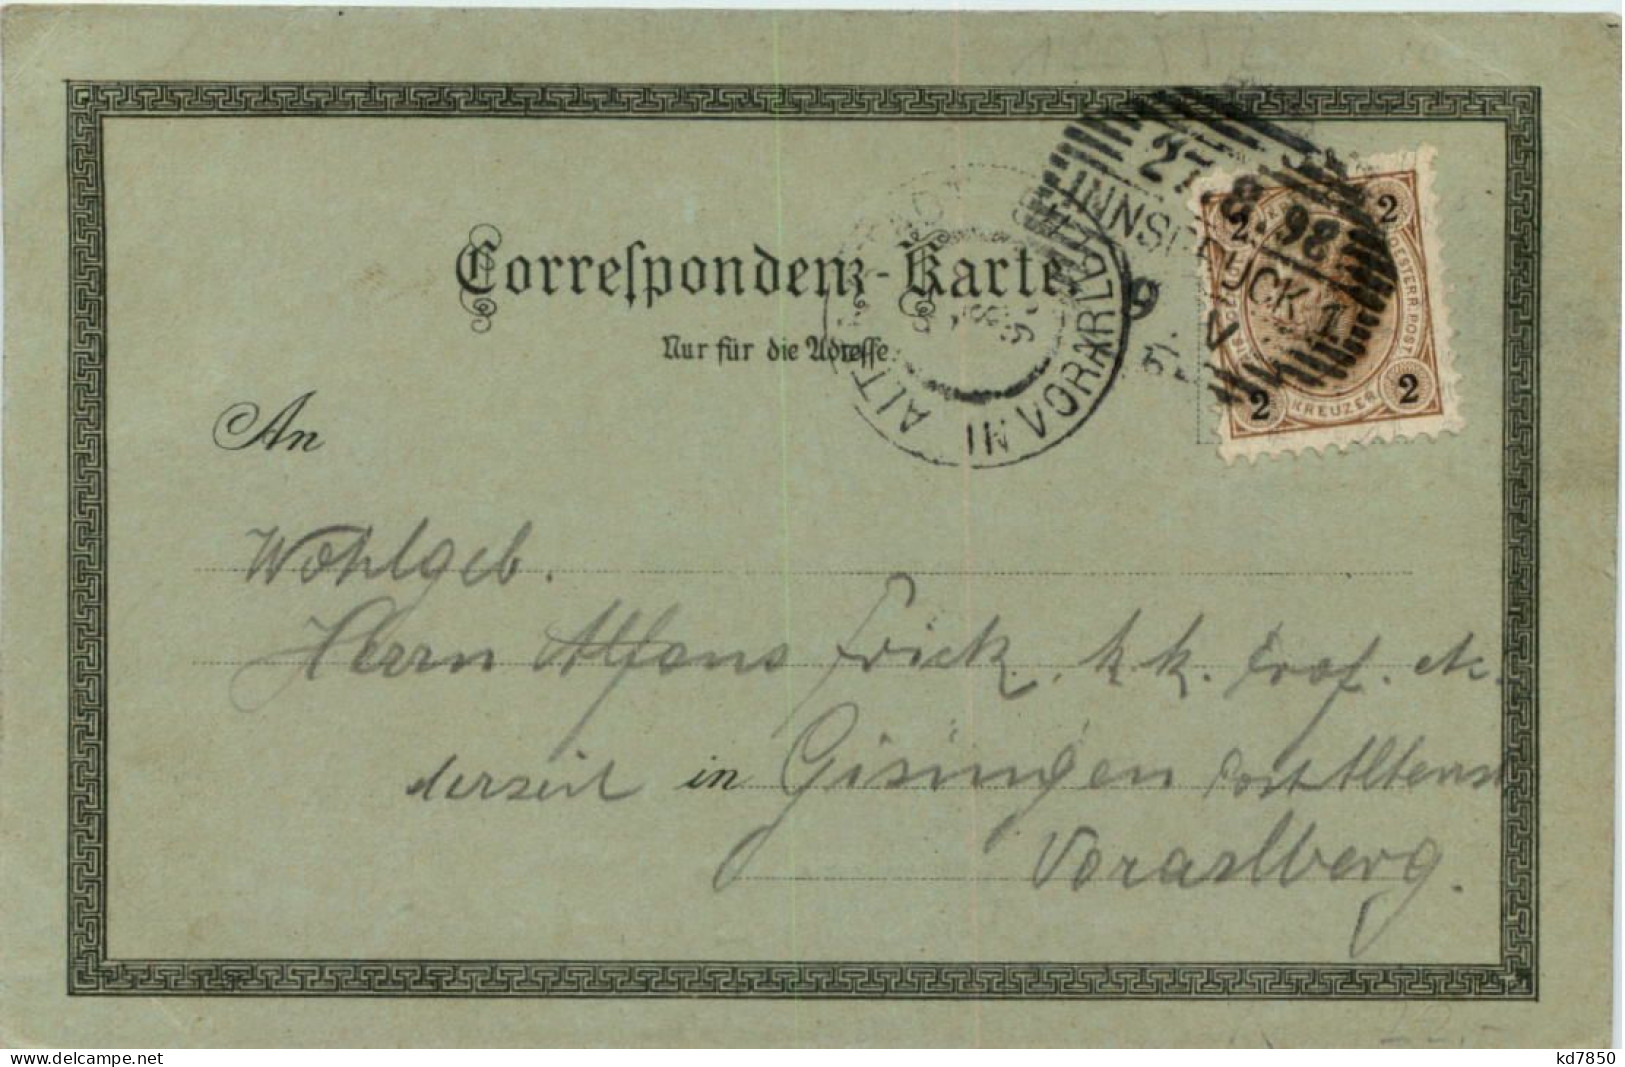 Correspondenz-Karte.
Nur für die Adresse.
27.8.98
INNSBRUCK 1
ALT
IN VORARLB
2 2
OESTERR. POST
2 KREUZER 2
An
Wohlgeb.
Herrn Alfons Frick, k. k. Prof. etc.
derzeit in Gisingen Post Altenst
Vorarlberg.
22,-
delcampe.net
kd7850